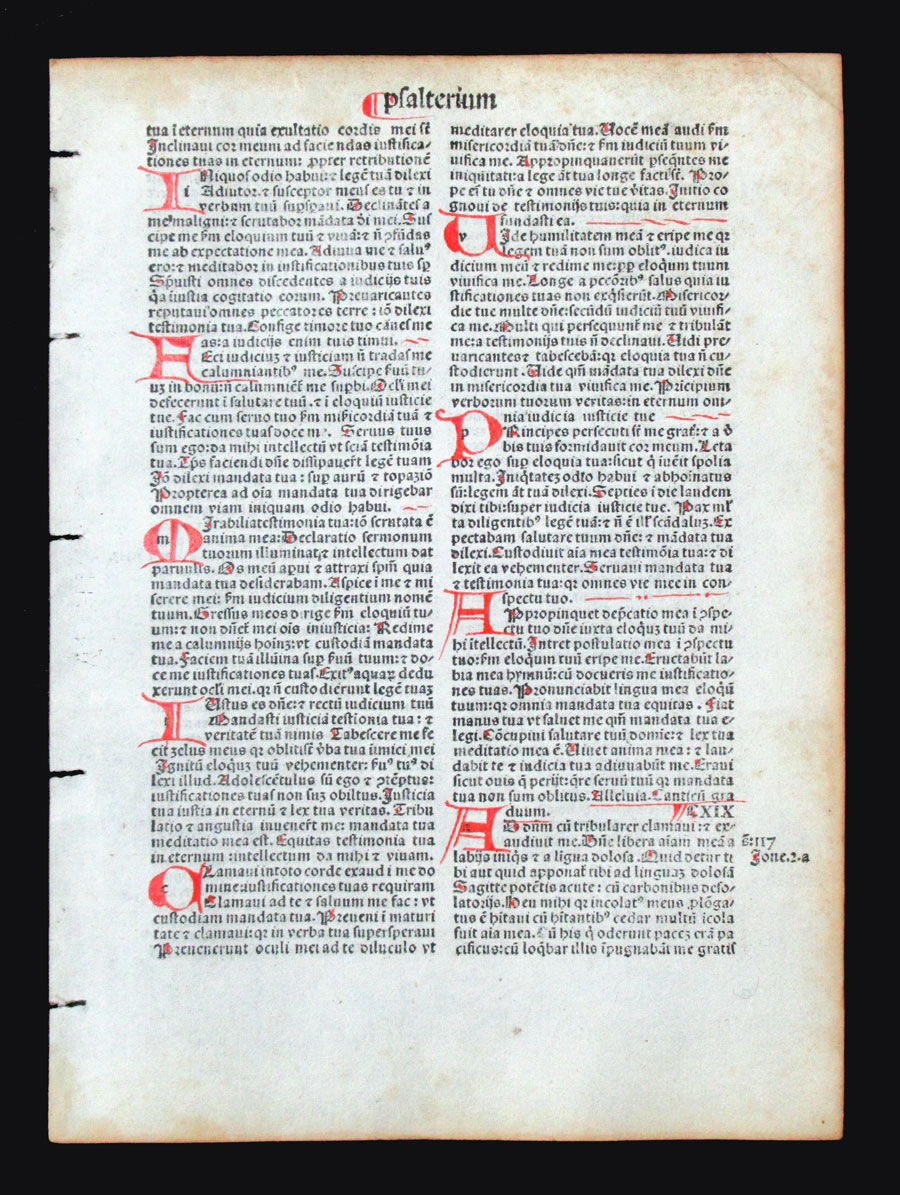 psalterium
tua ī eternum quia exultatio cordis mei st̄
Inclinaui cor meum ad faciendas iustifica⸗
tiones tuas in eternum: ꝓpter retributionē
i Niquos odio habui: ⁊ legē tuā dilexi
Adiutor ⁊ susceptor meus es tu ⁊ in
verbum tuū supsperaui. Declinātes a
me maligni: ⁊ scrutabor mādata dei mei. Sus
cipe me s̄m eloquium tuū ⁊ viuā: ⁊ n̄ ꝯfūdas
me ab expectatione mea. Adiuua me ⁊ saluꝰ
ero: ⁊ meditabor in iustificationibus tuis sp̄
Spreuisti omnes discedentes a iudicijs tuis
q̄a iniusta cogitatio eorum. Preuaricantes
reputaui omnes peccatores terre: iō dilexi
testimonia tua. Confige timore tuo carnes me
as: a iudicijs enim tuis timui.
Feci iudiciuꝫ ⁊ iusticiam n̄ tradas me
calumniantibꝰ me. Suscipe seruū tu⸗
uꝫ in bonū: n̄ calumniēt me supbi. Oculi mei
defecerunt ī salutare tuū: ⁊ ī eloquiū iusticie
tue. Fac cum seruo tuo s̄m mīsericordiā tuā ⁊
iustificationes tuas doce me. Seruus tuus
sum ego: da mihi intellectū vt sciā testimōia
tua. Tp̄s faciendi dn̄e dissipauert̄ legē tuam
Iō dilexi mandata tua: sup aurū ⁊ topaziō
Propterea ad oīa mandata tua dirigebar
omnem viam iniquam odio habui.
m Irabilia testimonia tua: iō scrutata ē
anima mea: Declaratio sermonum
tuorum illuminat, ⁊ intellectum dat
paruulis. Os meū aꝑui ⁊ attraxi spm̄ quia
mandata tua desiderabam. Aspice ī me ⁊ mi
serere mei: s̄m iudicium diligentium nomē
tuum. Gressus meos dirige s̄m eloquiū tu⸗
um: ⁊ non dn̄et mei oīs iniusticia: Redime
me a calumnijs hoinꝫ: vt custodiā mandata
tua. Faciem tuā illūina sup suū tuum: ⁊ do⸗
ce me iustificationes tuas. Exitꝰ aquaꝝ dedu
xerunt ocl̄i mei. qꝛ n̄ custodierunt legē tuaꝫ
i Ustus es dn̄e: ⁊ rectū iudicium tuū
Mandasti iusticiā testionia tua: ⁊
veritatē tuā nimis Tabescere me fe
cit zelus meus qꝛ obliti st̄ v̄ba tua inimici mei
Ignitū eloquꝫ tuū vehementer: suꝰ tuꝰ di
lexi illud. Adolescētulus sū ego ⁊ ꝯtēptus:
iustificationes tuas non suꝫ obiltus. Iusticia
tua iustia in eternū ⁊ lex tua veritas. Tribu
latio ⁊ angustia inuenert̄ me: mandata tua
meditatio mea est. Equitas testimonia tua
in eternum: intellectum da mihi ⁊ viuam.
c Lamaui in toto corde exaudi me do
mine: iustificationes tuas requiram
Clamaui ad te ⁊ saluum me fac: vt
custodiam mandata tua. Preueni ī maturi
tate ⁊ clamaui: qꝛ in verba tua supersperaui
Preuenerunt oculi mei ad te diluculo vt
meditarer eloquia tua. Uocē meā audi s̄m
misericordiā tuā dn̄e: ⁊ s̄m iudiciū tuum vi⸗
uifica me. Appropinquauerūt ꝑseq̄ntes me
iniquitati: a lege āt tua longe facti st̄. Pro⸗
pe es tu dn̄e ⁊ omnes vie tue v̄itas. Initio co
gnoui de testimonijs tuis: quia in eternum
fundasti ea.
v Ide humilitatem meā ⁊ eripe me qꝛ
legem tuā non sum oblitꝰ. iudica iu
dicium meū ⁊ redime me: ꝓp eloqum tuum
viuifica me. Longe a pecōribꝰ salus quia iu
stificationes tuas non exq̄sierūt. Misericor⸗
die tue multe dn̄e: secūdū iudiciū tuū viuifi⸗
ca me. Multi qui persequunt̄ me ⁊ tribulāt
me: a testimonijs tuis n̄ declinaui. Uidi pre⸗
uaricantes ⁊ tabescebā: qꝛ eloquia tua n̄ cu⸗
stodierunt. Uide qm̄ mādata tua dilexi dn̄e
in misericordia tua viuifica me. Pricipium
verborum tuorum veritas: in eternum om⸗
nia iudicia iusticie tue
p Rincipes persecuti st̄ me grat̄: ⁊ a v̄
bis tuis formidauit cor meum. Leta
bor ego sup eloquia tua: sicut q̄ iuēit spolia
multa. Iniq̄tatez odio habui ⁊ abhoīnatus
sū: legem āt tuā dilexi. Septies ī die laudem
dixi tibi: super iudicia iusticie tue. Pax ml̄
ta diligentibꝰ legē tuā: ⁊ n̄ ē il̄l scādaluꝫ. Ex
pectabam salutare tuum dn̄e: ⁊ mādata tua
dilexi. Custodiuit aīa mea testimōia tua: ⁊ di
lexit ea vehementer. Seruaui mandata tua
⁊ testimonia tua: qꝛ omnes vie mee in con⸗
spectu tuo.
Appropinquet dep̄catio mea ī ꝯspe⸗
ctu tuo dn̄e iuxta eloquꝫ tuū da mi⸗
hi ītellectū. Intret postulatio mea ī ꝯspectu
tuo: s̄m eloqum tuū eripe me. Eructabūt la⸗
bia mea hymnū: cū docueris me iustificatio⸗
nes tuas. Pronunciabit lingua mea eloqū
tuum: qꝛ omnia mandata tua equitas. Fiat
manus tua vt saluet me qm̄ mandata tua e⸗
legi. Cōcupiui salutare tuū domie: ⁊ lex tua
meditatio mea ē. Uiuet anima mea: ⁊ lau⸗
dabit te ⁊ iudicia tua adiuuabūt me. Eraui
sicut ouis q̄ perijt: q̄re seruū tuū qꝛ mandata
tua non sum oblitus. Alleluia. Canticū gra
duum. CXIX
A D dn̄m cū tribularer clamaui: ⁊ ex⸗
audiuit me. Dn̄e libera aīam meā a ē: 117
labijs iniq̄s ⁊ a līgua dolosa. Quid detur ti Ione. 2. a
bi aut quid apponat̄ tibi ad linguaꝫ dolosā
Sagitte potētis acute: cū carbonibus deso⸗
latorijs. Heu mihi qꝛ incolatꝰ meus ꝓlōga⸗
tus ē hītaui cū hītantibꝰ cedar multū īcola
fuit aīa mea. Cū his q̄ oderunt paceꝫ erā pa
cificus: cū loq̄bar illis īpugnabāt me gratis